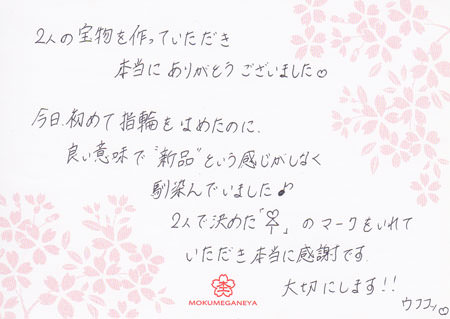 2人の宝物を作っていただき
本当にありがとうございました♡
今日、初めて指輪をはめたのに、
良い意味で"新品"という感じがしなく
馴染んでいました♪
2人で決めた「　」のマークをいれて
いただき本当に感謝です。
大切にします!!
ウフフッ♡
MOKUMEGANEYA